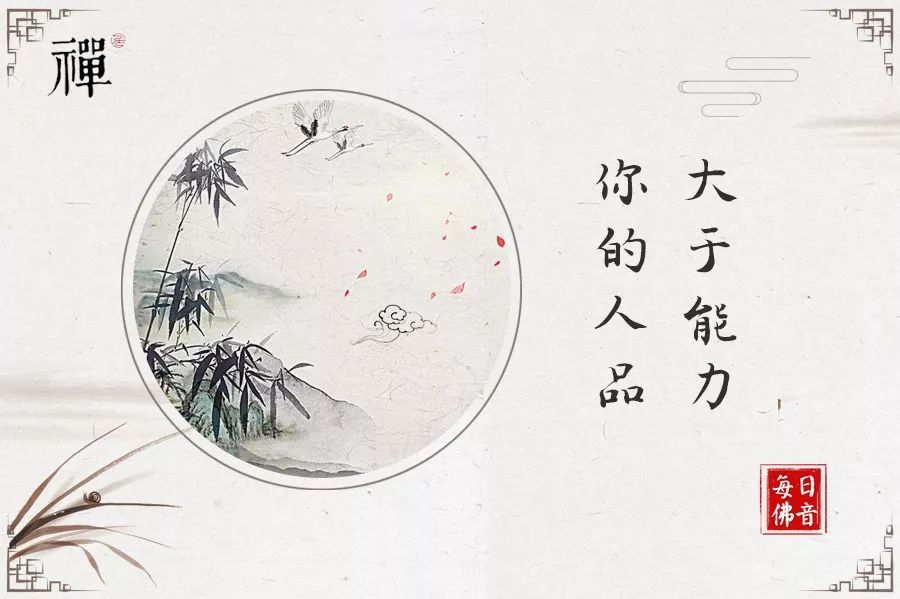 禪
你的人品
大于能力
每日
佛音